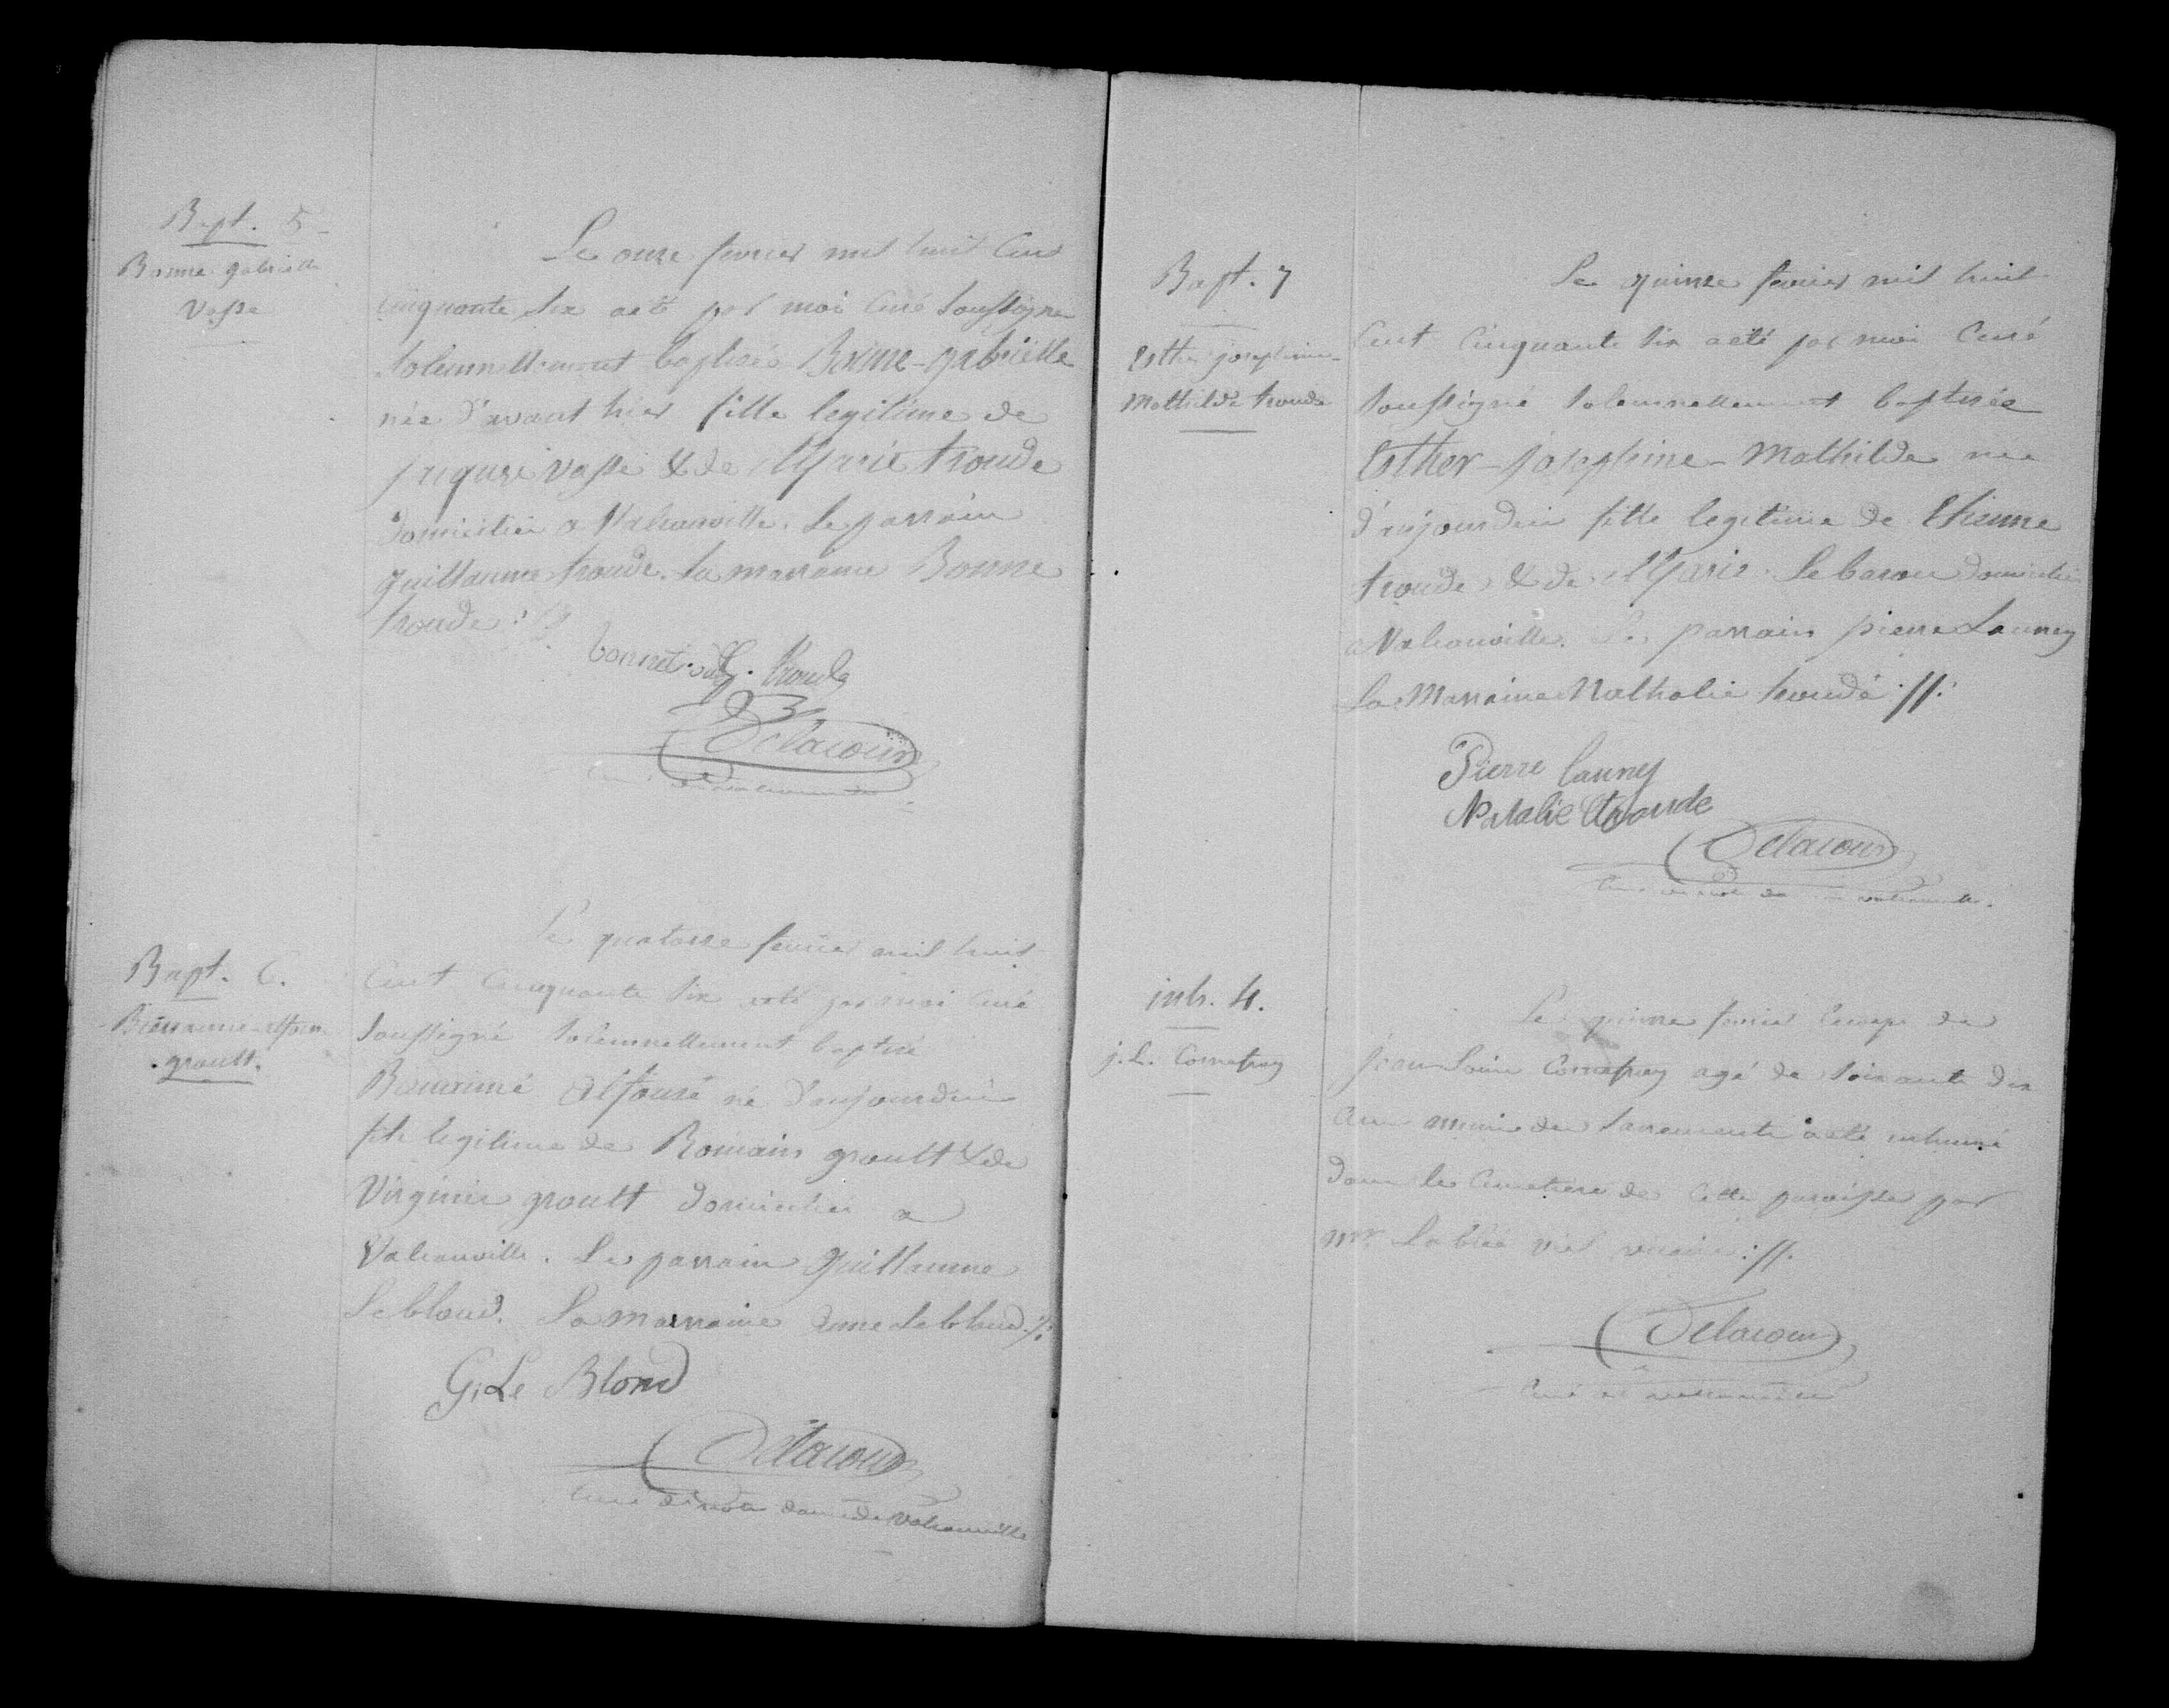 Bapt. 5
Bonne gabrielle
Vasse
Le onze fevrier mil huit Cent
cinquante six aeté par moi Curé Soussigné
Solennellement baptisée Bonne-gabrielle
née d'avant hier fille legitime de
jacques vasse & de Marie troude
domicilies a Valcanville. Le parrain
guillaume troude. La marraine Bonne
troude :
G. troude
Delacour
Bapt. 6.
groult.
Le quatorze fevrier mil huit
Cent Cinquante Six aeté par moi Curé
Soussigné Solennellement baptisé
Bienaimé Alfonse né d'aujourdui
fils legitime de Romain groult & de
Virginie groult domicilies a
Valcanville. Le parrain Guillaume
Leblond. La marraine Leblond
G. Le Blond
Delacour
Curé de notre dame de Valcanville
Bapt. 7
Esther josephine-
Mathilde troude
Le quinze fevrier mil huit
Cent Cinquante Six aeté par moi Curé
Soussigné Solennellement baptisée
Esther-josephine-Mathilde née
d'aujourdui fille legitime de Etienne
troude & de Marie Lebaron domicilies
a Valcanville. Le parrain pierre Launey
La Marraine Nathalie troude .//.
Pierre launey
Natalie troude
Delacour
inh. 4.
j. L.
Le quinze fevrier le corps de
jean Louis agé de Soixante dix
ans muni des Sacrements aeté inhumé
dans le Cimetiere de Cette paroisse par
mr. Labbé viel vicaire .//.
Delacour
Curé de valcanville